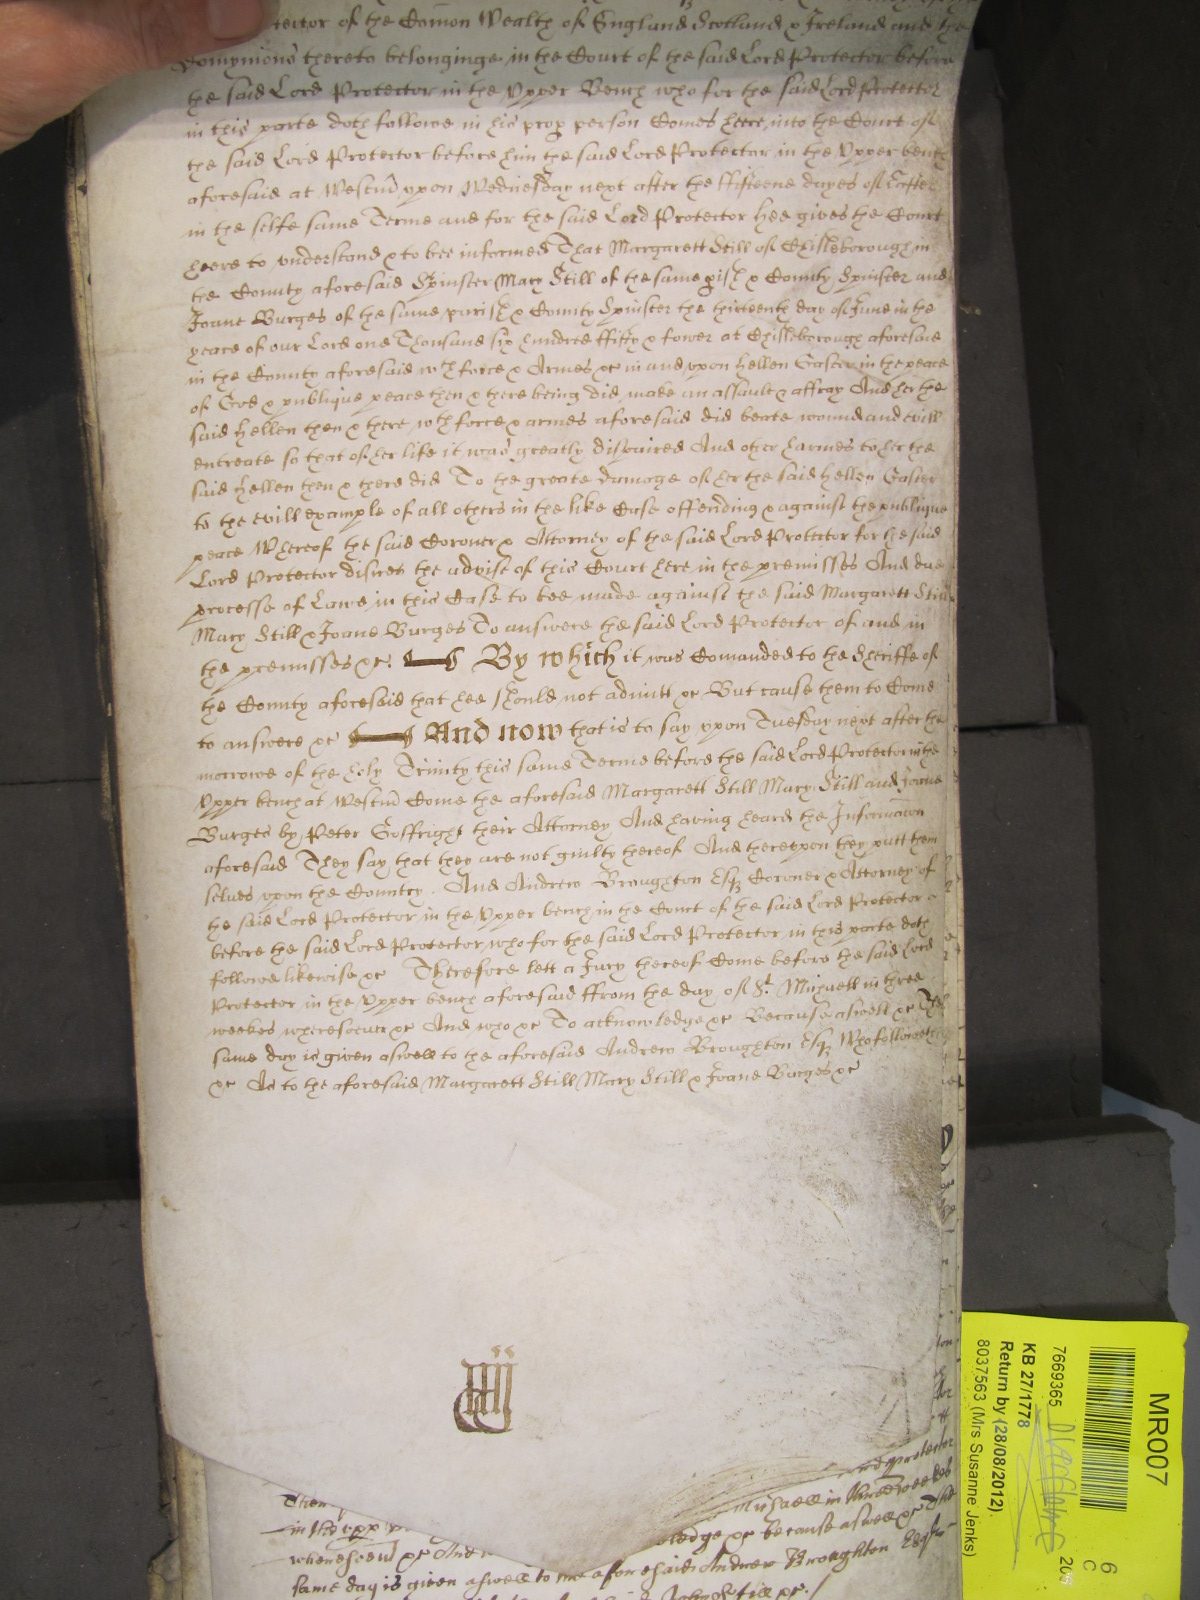 tector of the Com̄on Wealth of England Scotland & Ireland and the
Domynions thereto belonginge in the Court of the said Lord Protector before
the said Lord Protector in the Upper Bench who for the said Lord Protector
in this parte doth followe in his prop person Comes heere into the Court of
the said Lord Protector before him the said Lord Protector in the Upper bench
aforesaid at Westm̄ upon Wednesday next after the ffifteene dayes of Easter
in the selfe same Terme and for the said Lord Protector hee gives the Court
heere to understand & to bee informed That Margarett Still of Chisleborough in
the County aforesaid Spinster Mary Still of the same pish & County Spinster and
Joane Burges of the same parish & County Spinster the thirteenth day of June in the
yeare of our Lord one Thousand six hundred ffifty & fower at Chisleborough aforesaid
in the County aforesaid wth force & Armes &c in and upon Hellen Gaster in the peace
of God & publique peace then & there being did make an assault & affray And her the
said Hellen then & there wth force & armes aforesaid did beate wound and evill
entreate so that of her life it was greatly dispaired And other harmes to her the
said Hellen then & there did To the greate damage of her the said Hellen Gaster
to the evill example of all others in the like Case offending & against the publique
peace Whereof the said Coroner & Attorney of the said Lord Protector for the said
Lord Protector disires the advise of this Court here in the premisses And due
processe of Lawe in this Case to bee made against the said Margarett Still
Mary Still & Joane Burges To answere the said Lord Protector of and in
the premisses &c By which it was Comanded to the Sheriffe of
the County aforesaid that hee should not admitt &c But cause them to Come
to answere &c And now that is to say upon Tuesday next after the
morrowe of the holy Trinity this same Terme before the said Lord Protector in the
Upper bench at Westm̄ Come the aforesaid Margarett Still Mary Still and Joane
Burges by Peter Goffright their Attorney And having heard the Informac̄on
aforesaid They say that they are not guilty thereof And thereupon they putt them
selves upon the Country. And Andrew Broughton Esq Coroner & Attorney of
the said Lord Protector in the Upper bench in the Court of the said Lord Protector
before the said Lord Protector who for the said Lord Protector in this parte doth
followe likewise &c Therefore lett a Jury thereof Come before the said Lord
Protector in the Upper bench aforesaid ffrom the day of St Michaell in three
weekes wheresoever &c And who &c To acknowledge &c Because aswell &c The
same day is given aswell to the aforesaid Andrew Broughton Esq Who followeth
&c As to the aforesaid Margarett Still Mary Still & Joane Burges &c
iiij
Protector
Michaell in three weekes
in the upp
ledge &c because aswell &c The
&c And
same day is given aswell to the aforesaid Andrew Broughton Esq
Still &c
MR007
6
C
7669365
KB 27/1778
Return by (28/08/2012)
8037563 (Mrs Susanne Jenks)